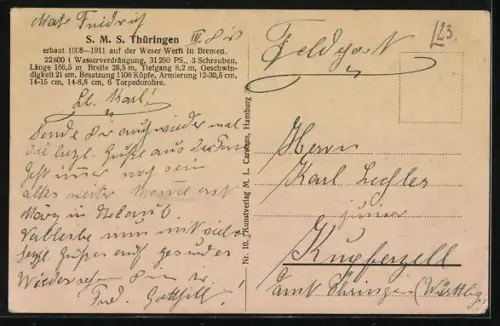 Matr. Friedrich
S. M. S. Thüringen
erbaut 1908-1911 auf der Weser Werft in Bremen.
22800 t Wasserverdrängung, 31250 PS., 3 Schrauben,
Länge 166,5 m Breite 28,5 m, Tiefgang 8,2 m, Geschwin-
digkeit 21 sm, Besatzung 1106 Köpfe, Armierung 12-30,5 cm,
14-15 cm, 14-8,8 cm, 6 Torpedorohre.
Lb. Karl!
Sende Dir auch wieder mal
die herzl. Grüße aus
Geht immer noch
alles weiter
März in Urlaub.
Verbleibe nun mit viel
herzl. Grüßen auf gesundes
Wiedersehen Dein
Frd. Gotthilf!
Nr. 10. Kunstverlag M. L. Carstens, Hamburg
Feldpost
123.
Herrn
Karl Lechler
junior
Kupferzell
Amt Öhringen (Württbg.)